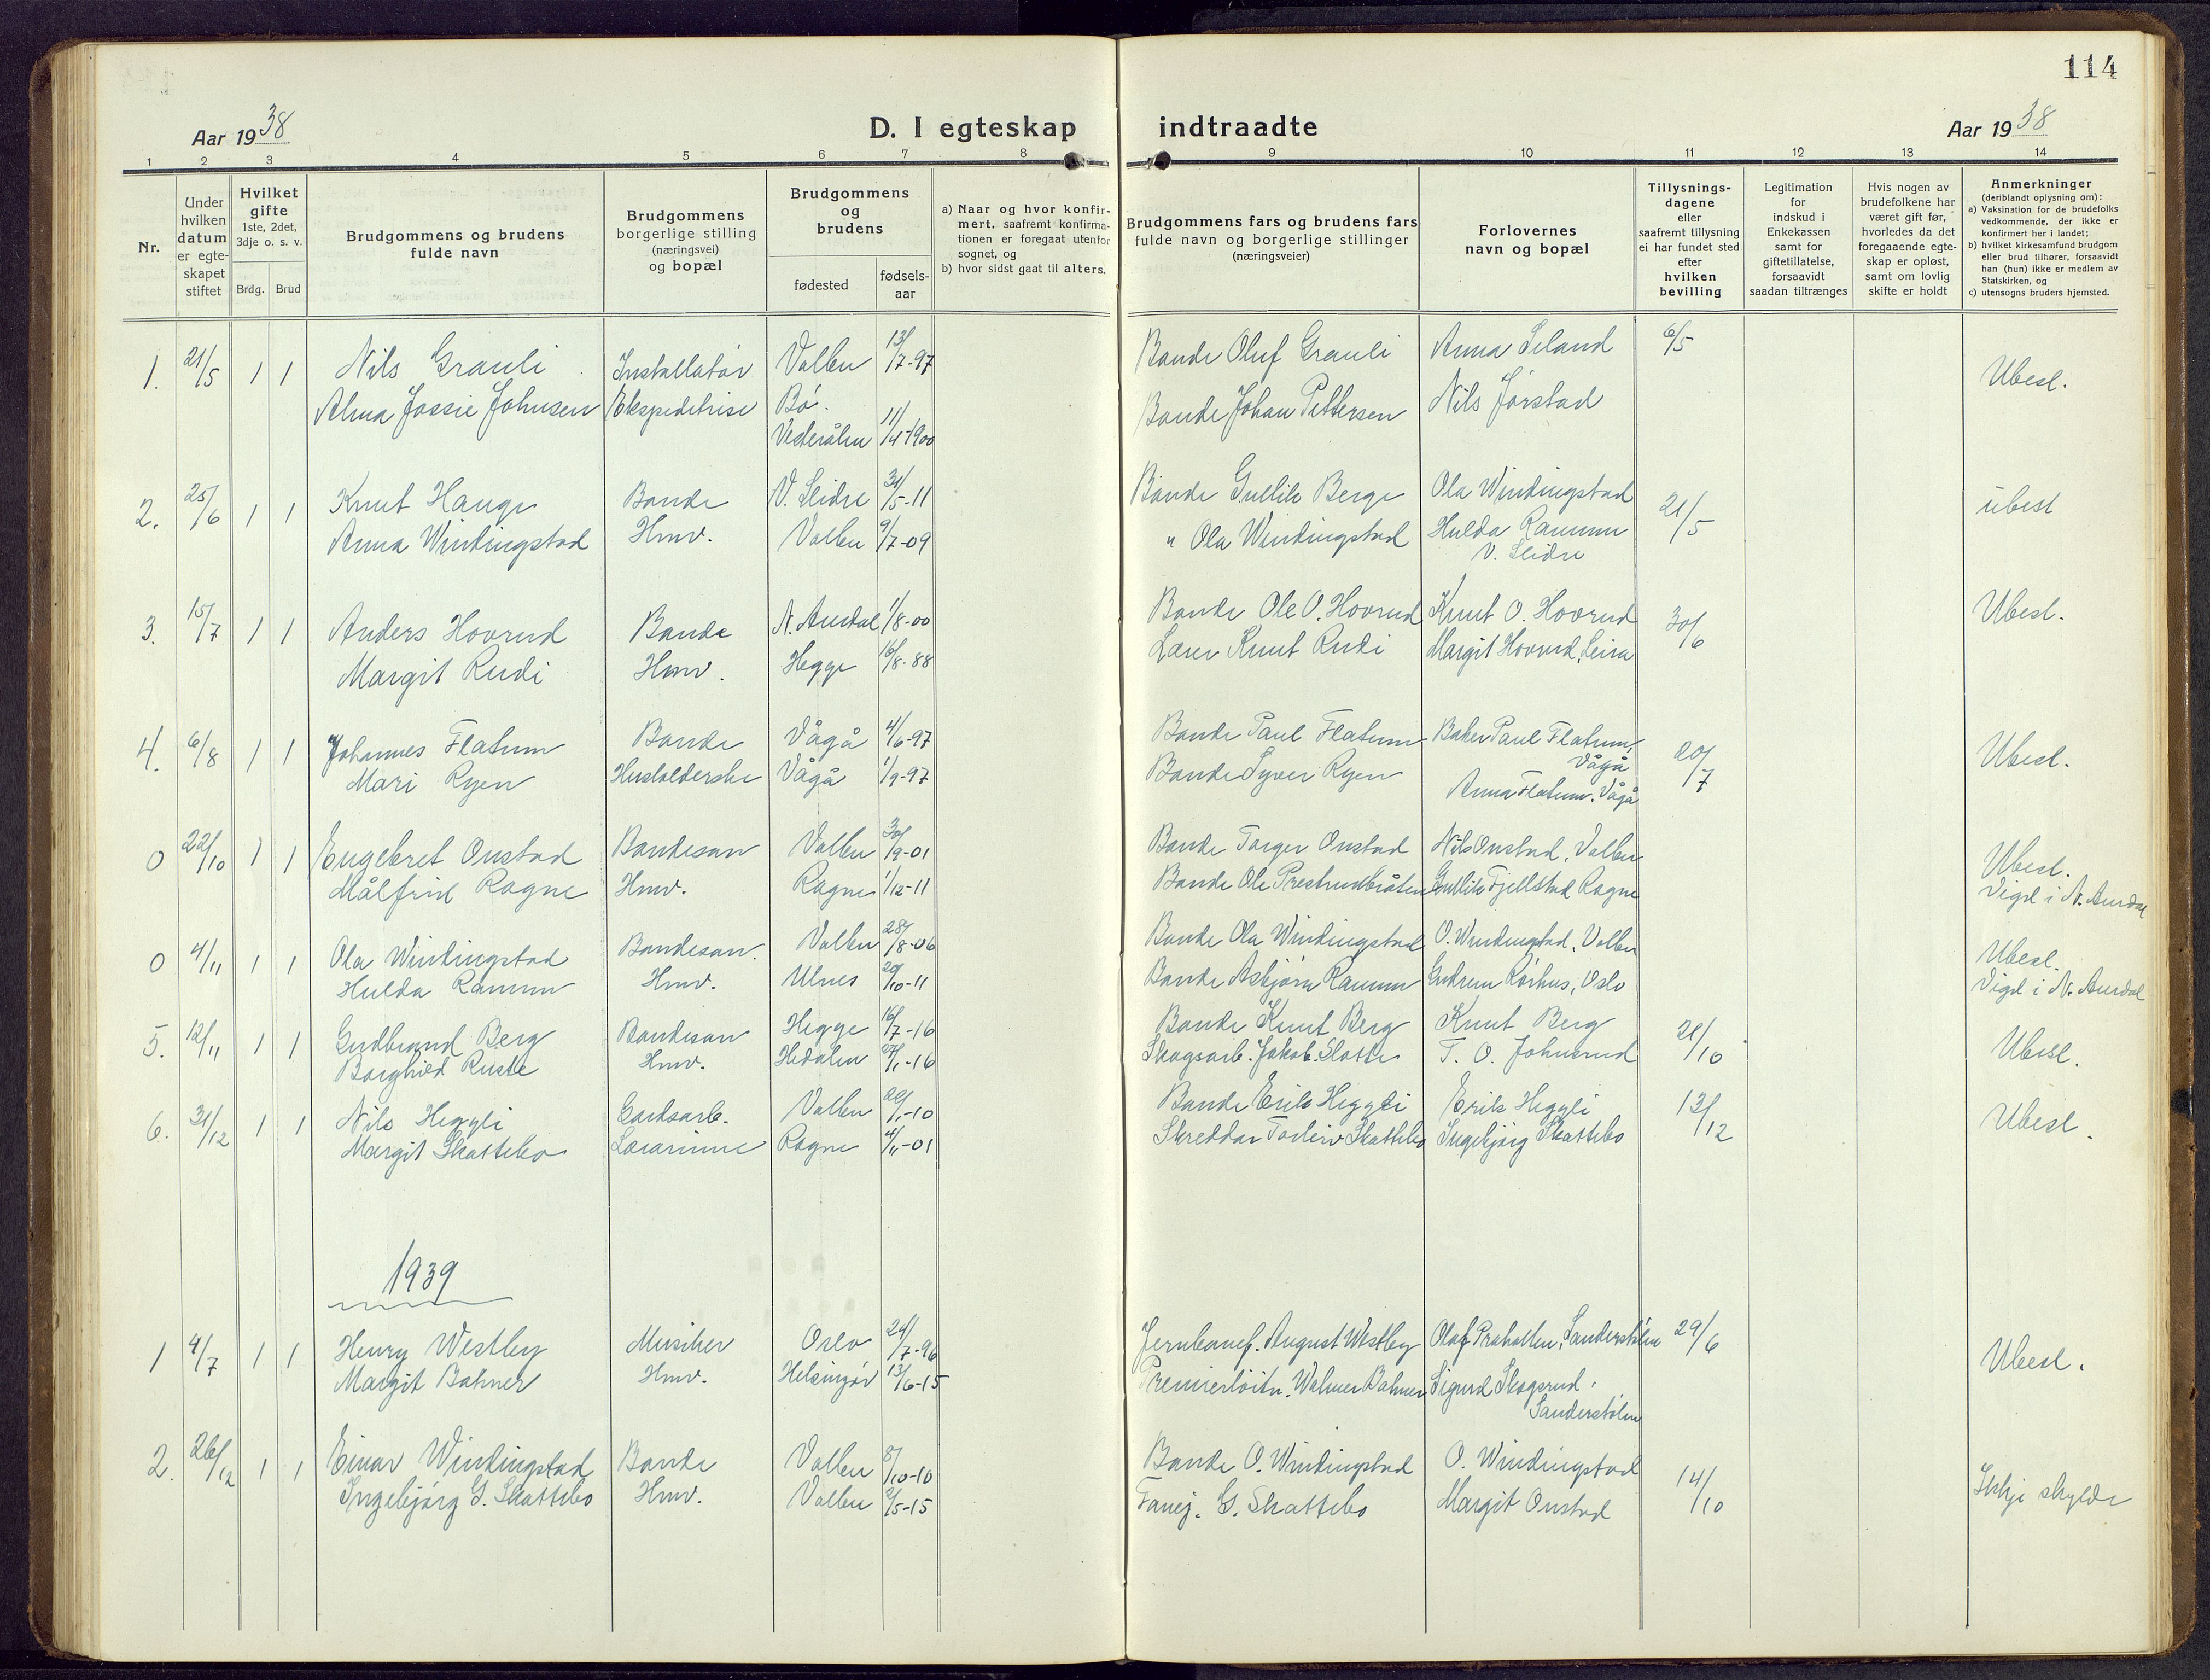 114
Aar 1938
D. I egteskap indtraadte
Aar 1938
1 2 3 4 5 6 7 8 9 10 11 12 13 14
Nr.
Under hvilken datum er egteskapet stiftet
Hvilket gifte 1ste, 2det, 3dje o. s. v.
Brdg. Brud
Brudgommens og brudens fulde navn
Brudgommens borgerlige stilling (næringsvei) og bopæl
Brudgommens og brudens
fødested
fødselsaar
a) Naar og hvor konfirmert, saafremt konfirmationen er foregaat utenfor sognet, og
b) hvor sidst gaat til alters.
Brudgommens fars og brudens fars fulde navn og borgerlige stillinger (næringsveier)
Forlovernes navn og bopæl
Tillysningsdagene eller saafremt tillysning ei har fundet sted efter hvilken bevilling
Legitimation for indskud i Enkekassen samt for giftetillatelse, forsaavidt saadan tiltrænges
Hvis nogen av brudefolkene har været gift før, hvorledes da det foregaaende egteskap er opløst, samt om lovlig skifte er holdt
Anmerkninger (deriblandt oplysning om):
a) Vaksination for de brudefolks vedkommende, der ikke er konfirmert her i landet;
b) hvilket kirkesamfund brudgom eller brud tilhører, forsaavidt han (hun) ikke er medlem av Statskirken, og
c) utensogns bruders hjemsted.
1. 21/5 1 1 Nils Grauli Installatør Volbu 13/7-97 Bonde Oluf Grauli Anna Seland 6/5 Ubesl.
Alma Jossie Johnsen Ekspeditrise Bø. Vesterålen 11/4-1900 Bonde Johan Pettersen Nils Jørstad
2. 25/6 1 1 Knut Hauge Bonde V. Slidre 31/5-11 Bonde Gullik Berge Ola Windingstad 21/5 ubesl
Anna Windingstad Hmv. Volbu 9/7-09 " Ola Windingstad Hulda Ranum V. Slidre
3. 15/7 1 1 Anders Hovrud Bonde N. Aurdal 1/8-00 Bonde Ole O. Hovrud Knut O. Hovrud 30/6 Ubesl.
Margit Rudi Hmv. Hegge 16/8-88 Lærer Knut Rudi Margit Hovrud, Leira
4. 6/8 1 1 Johannes Flatum Bonde Vågå 4/6-97 Bonde Paul Flatum Baker Paul Flatum, Vågå 20/7 Ubesl.
Mari Ryen Husholderske Vågå 1/9-97 Bonde Syver Ryen Anna Flatum. Vågå
0 22/10 1 1 Engebret Onstad Bondesøn Volbu 30/9-01 Bonde Torger Onstad Nils Onstad, Volbu Ubesl.
Målfrid Rogne Hmv. Rogne 1/12-11 Bonde Ole Prestrudbråten Gullik Fjellstad Rogne Vigd i N. Aurdal
0 4/11 1 1 Ola Windingstad Bondesøn. Volbu 28/8-06 Bonde Ola Windingstad O. Windingstad, Volbu Ubesl.
Hulda Ranum Hmv. Ulnes 20/10-11 Bonde Asbjørn Ranum Gudrun Rørhus, Oslo Vigd i N. Aurdal
5. 12/11 1 1 Gudbrand Berg Bondesøn Hegge 16/7-16 Bonde Knut Berg Knut Berg 21/10 Ubesl.
Borghild Ruste Hmv. Hedalen 27/1-16 Skogsarb. Jakob Slotte T. O. Johnsrud
6. 31/12 1 1 Nils Heggli Gardsarb. Volbu 20/1-10 Bonde Erik Heggli Erik Heggli 13/12 Ubesl.
Margit Skattebo Lærarinne Rogne 4/11-01 Skreddar Torleiv Skattebo Ingebjørg Skattebo
1939
1 4/7 1 1 Henry Westby Musiker Oslo 24/7-96 Jernbanef. August Westby Olaf Praholten, Sanderstølen 29/6 Ubesl.
Margit Bahner Hmv. Helsingør 13/6-15 Premierløitn. Walmer Bahner Sigurd Skogsrud. Sanderstølen
2. 26/12 1 1 Einar Windingstad Bonde Volbu 8/10-10 Bonde O. Windingstad O. Windingstad 14/10 Ikkje skylde
Ingebjørg G. Skattebo Hmv. Volbu 2/5-15 Fanej. G. Skattebo Margit Onstad